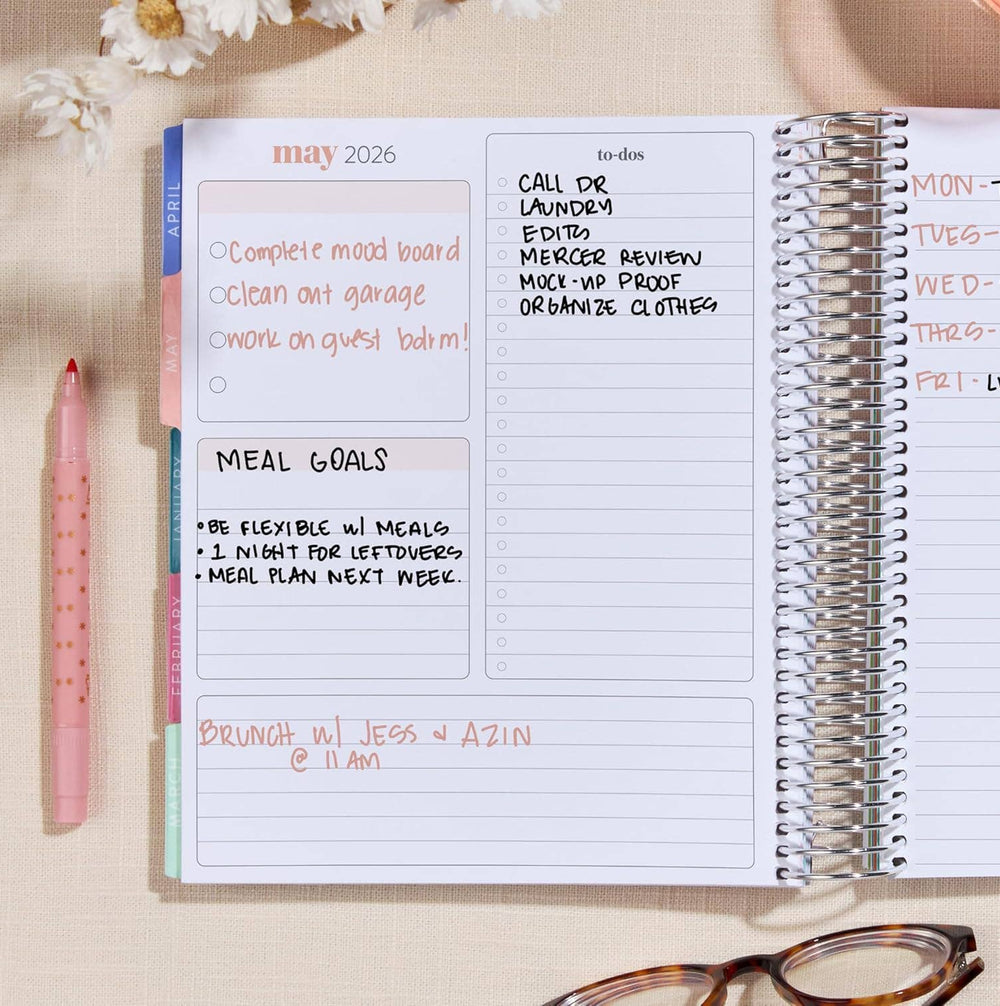 may 2026
Complete mood board
Clean out garage
work on guest bdrm!
MEAL GOALS
• BE FLEXIBLE w/ MEALS
• 1 NIGHT FOR LEFTOVERS
• MEAL PLAN NEXT WEEK.
to-dos
CALL DR
LAUNDRY
EDITS
MERCER REVIEW
MOCK-UP PROOF
ORGANIZE CLOTHES
BRUNCH w/ JESS & AZIN
@ 11 AM
APRIL
MAY
JANUARY
FEBRUARY
MARCH
MON-
TUES-
WED-
THRS-
FRI-